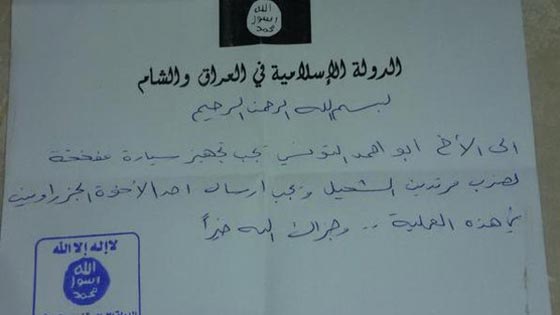 الله
رسول
محمد
الدولة الإسلامية في العراق والشام
بسم الله الرحمن الرحيم
الى الأخ ابو احمد التونسي يجب تجهيز سيارة مفخخة
لضرب مرتدين الشحيل ويجب ارسال احد الأخوة الجزراويين
في هذه العملية .. وجزاك الله خيراً
لا إله إلا الله
الله
رسول
محمد